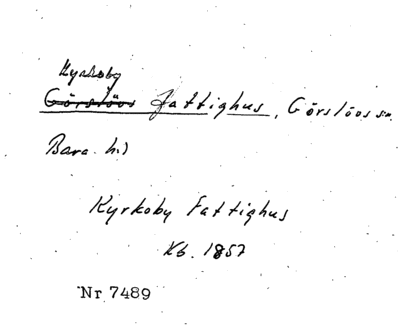 Kyrkoby
Görslöös Fattighus, Görslöos sn.
Bara hd
Kyrkoby Fattighus
Kb. 1857
Nr 7489